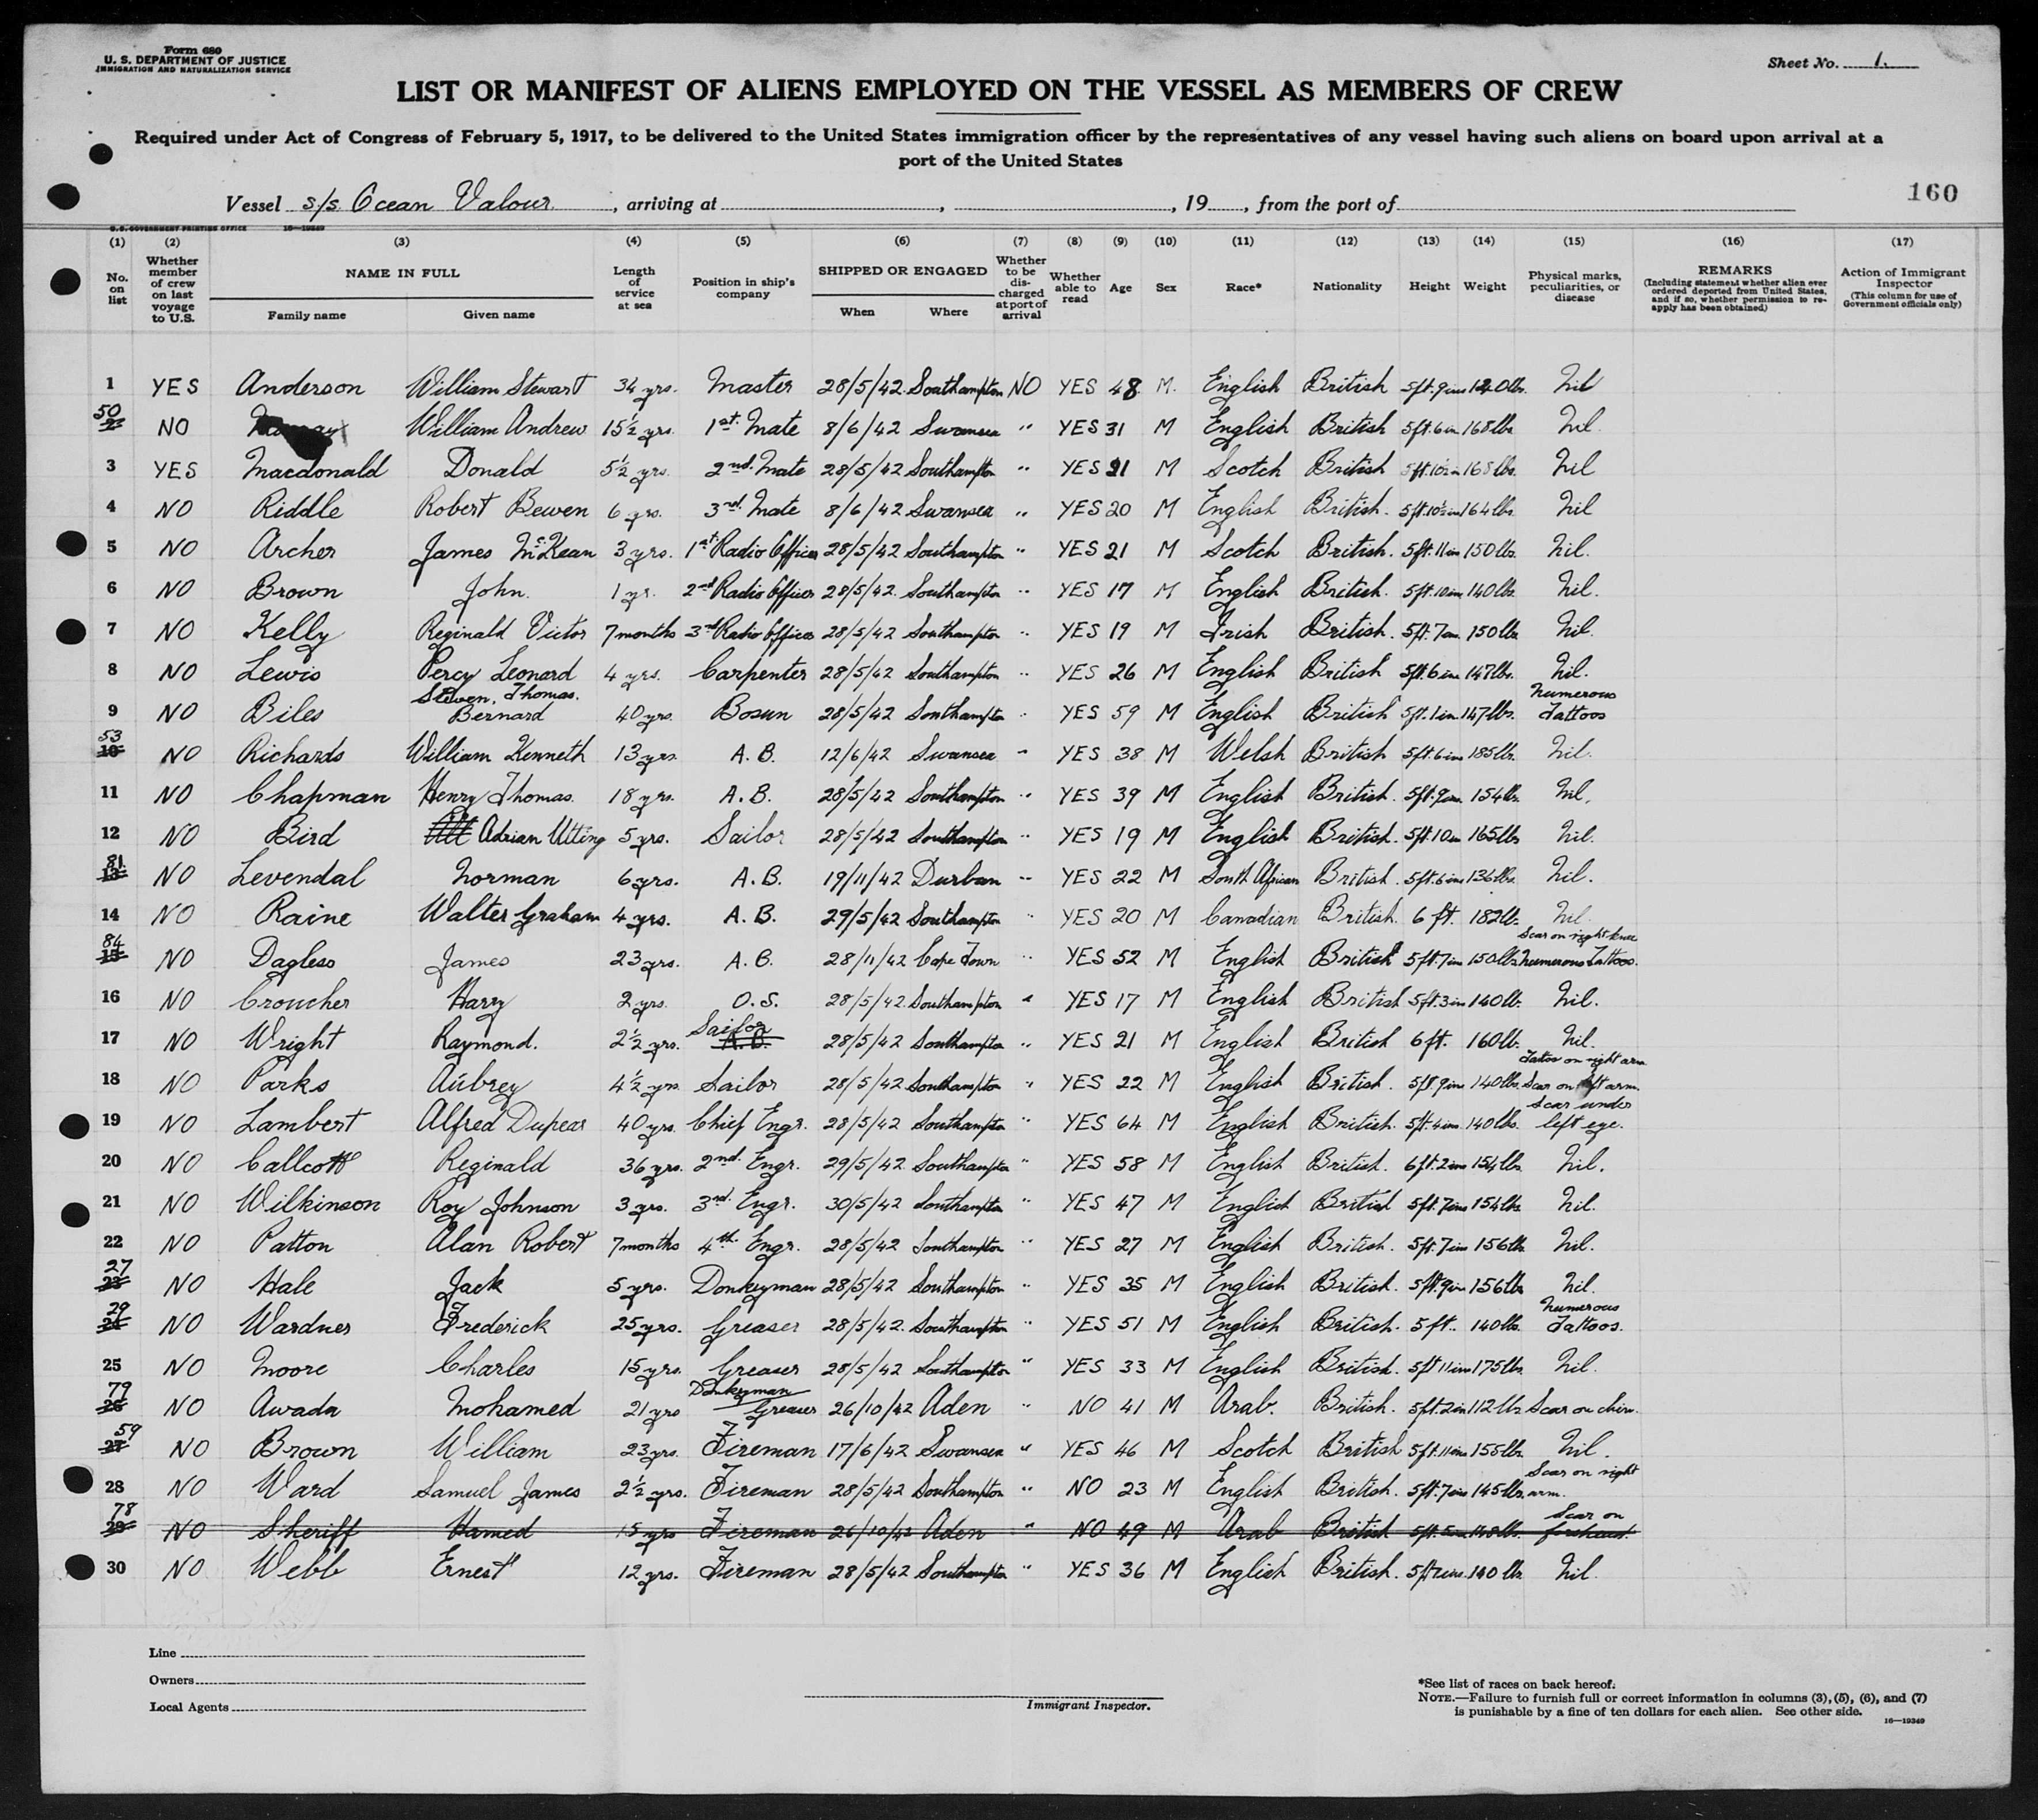 Form 680
U. S. DEPARTMENT OF JUSTICE
IMMIGRATION AND NATURALIZATION SERVICE
Sheet No. 1.
LIST OR MANIFEST OF ALIENS EMPLOYED ON THE VESSEL AS MEMBERS OF CREW
Required under Act of Congress of February 5, 1917, to be delivered to the United States immigration officer by the representatives of any vessel having such aliens on board upon arrival at a
port of the United States
Vessel s/s. Ocean Valour, arriving at , , 19 , from the port of
160
U.S. GOVERNMENT PRINTING OFFICE 16—19349
(1) (2) (3) (4) (5) (6) (7) (8) (9) (10) (11) (12) (13) (14) (15) (16) (17)
No. on list
Whether member of crew on last voyage to U.S.
NAME IN FULL
Family name Given name
Length of service at sea
Position in ship's company
SHIPPED OR ENGAGED
When Where
Whether to be discharged at port of arrival
Whether able to read
Age
Sex
Race*
Nationality
Height
Weight
Physical marks, peculiarities, or disease
REMARKS
(Including statement whether alien ever ordered deported from United States, and if so, whether permission to re-apply has been obtained)
Action of Immigrant Inspector
(This column for use of Government officials only)
1 YES Anderson William Stewart 34 yrs. Master 28/5/42 Southampton NO YES 48 M. English British 5ft.9ins 140lbs. Nil
50 NO William Andrew 15½ yrs. 1st. Mate 8/6/42 Swansea " YES 31 M English British 5ft.6in 168lbs Nil.
3 YES Macdonald Donald 5½ yrs. 2nd. Mate 28/5/42 Southampton " YES 21 M Scotch British 168lbs. Nil
4 NO Riddle Robert Bewen 6 yrs. 3rd. Mate 8/6/42 Swansea " YES 20 M English British. 5ft.10½in 164lbs. Nil
5 NO Archer James McKean 3 yrs. 1st Radio Officer 28/5/42 Southampton " YES 21 M Scotch British. 5ft.11in 150lbs. Nil.
6 NO Brown John. 1 yr. 2nd Radio Officer 28/5/42 Southampton " YES 17 M English British. 5ft.10ins 140lbs. Nil.
7 NO Kelly Reginald Victor 7 months 3rd Radio Officer 28/5/42 Southampton " YES 19 M Irish British. 5ft.7ins. 150lbs Nil.
8 NO Lewis Percy Leonard 4 yrs. Carpenter 28/5/42 Southampton " YES 26 M English British 5ft.6ins 147lbs. Nil.
9 NO Biles Steven, Thomas. Bernard 40 yrs. Bosun 28/5/42 Southampton " YES 59 M English British 5ft.1in 147lbs. Numerous Tattoos
53 10 NO Richards William Kenneth 13 yrs. A.B. 12/6/42 Swansea " YES 38 M Welsh British 5ft.6ins 185lbs. Nil.
11 NO Chapman Henry Thomas. 18 yrs. A.B. 28/5/42 Southampton " YES 39 M English British. 5ft.9ins. 154lbs. Nil.
12 NO Bird Adrian Utting 5 yrs. Sailor 28/5/42 Southampton " YES 19 M English British. 5ft.10in 165lbs Nil.
81. 13 NO Levendal Norman 6 yrs. A.B. 19/11/42 Durban " YES 22 M South African British. 5ft.6ins 136lbs. Nil.
14 NO Raine Walter Graham 4 yrs. A.B. 29/5/42 Southampton " YES 20 M Canadian British. 6 ft. 182lb. Nil.
84 15 NO Dagless James 23 yrs. A.B. 28/11/42 Cape Town " YES 52 M English British 5ft.7in 150lbs Scar on right knee Numerous Tattoos.
16 NO Croucher Harry 2 yrs. O.S. 28/5/42 Southampton " YES 17 M English British 5ft.3in 140lb. Nil.
17 NO Wright Raymond. 2½ yrs. Sailor A.B. 28/5/42 Southampton " YES 21 M English British 6 ft. 160lb. Nil.
18 NO Parks Aubrey 4½ yrs Sailor 28/5/42 Southampton " YES 22 M English British. 5ft.9ins 140lbs. Tatoo on right arm Scar on left arm.
19 NO Lambert Alfred 40 yrs. Chief Engr. 28/5/42 Southampton " YES 64 M English British. 5ft.4ins. 140lbs. Scar under left eye.
20 NO Callcott Reginald 36 yrs. 2nd. Engr. 29/5/42 Southampton " YES 58 M English British. 6ft.2ins 154lbs Nil.
21 NO Wilkinson Roy Johnson 3 yrs. 3rd. Engr. 30/5/42 Southampton " YES 47 M English British 5ft.7ins 154lbs. Nil.
22 NO Patton Alan Robert 7 months 4th. Engr. 28/5/42 Southampton " YES 27 M English British. 5ft.7ins 156lbs Nil.
27 23 NO Hale Jack 5 yrs. Donkeyman 28/5/42 Southampton " YES 35 M English British. 5ft.9in 156lbs Nil.
29 24 NO Wardner Frederick 25 yrs. Greaser 28/5/42. Southampton " YES 51 M English British. 5 ft. 140lbs. Numerous Tattoos.
25 NO Moore Charles 15 yrs. Greaser 28/5/42 Southampton " YES 33 M English British. 5ft 11ins 175lbs. Nil.
79 26 NO Awada Mohamed 21 yrs Donkeyman Greaser 26/10/42 Aden " NO 41 M Arab. British. 5ft.2in 112lbs. Scar on chin.
59 27 NO Brown William 23 yrs. Fireman 17/6/42 Swansea " YES 46 M Scotch British 5ft.11ins 155lbs. Nil.
28 NO Ward Samuel James 2½ yrs. Fireman 28/5/42 Southampton " NO 23 M English British. 5ft.7ins 145lbs. Scar on right arm.
78 29 NO Sheriff Hamed 15 yrs Fireman 26/10/42 Aden " NO 49 M Arab British 5ft.5ins 148lbs. Scar on forehead.
30 NO Webb Ernest 12 yrs. Fireman 28/5/42 Southampton " YES 36 M English British. 140 lbs Nil.
Line
Owners
Local Agents
Immigrant Inspector.
*See list of races on back hereof.
NOTE.—Failure to furnish full or correct information in columns (3), (5), (6), and (7)
is punishable by a fine of ten dollars for each alien. See other side.
16—19349